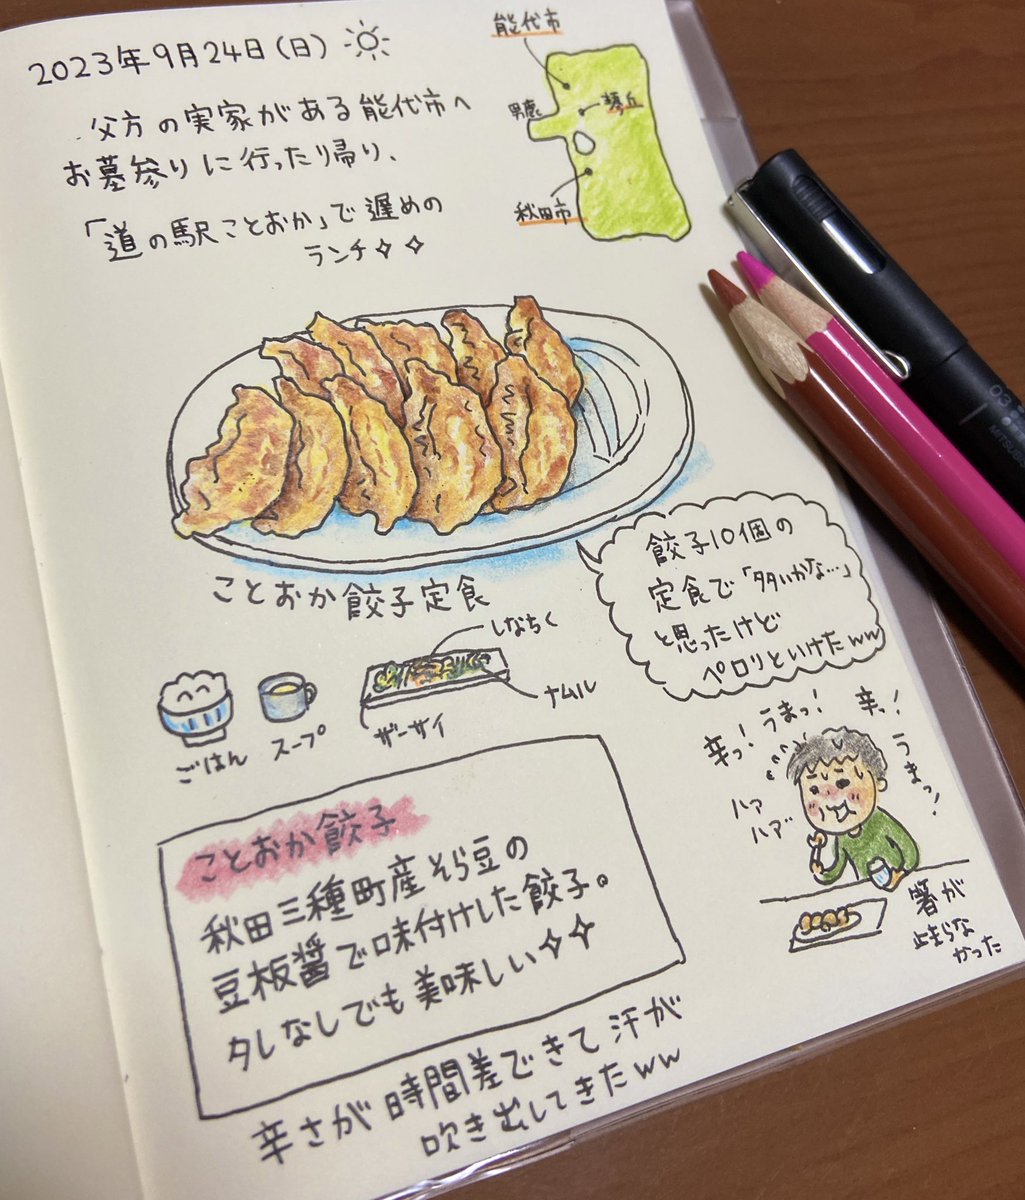 2023年9月24日(日)
父方の実家がある能代市へ
お墓参りに行ったり帰り、
「道の駅ことおか」で遅めの
ランチ✧✧
能代市
男鹿
琴丘
秋田市
ことおか餃子定食
餃子10個の
定食で「多いかな…」
と思ったけど
ペロリといけたww
しなちく
ナムル
ザーサイ
ごはん
スープ
辛っ!うまっ!
辛っ!
うまっ!
ハァ
ハァ
箸が
止まらな
かった
ことおか餃子
秋田三種町産そら豆の
豆板醤で味付けした餃子。
タレなしでも美味しい✧✧
辛さが時間差できて汗が
吹き出してきたww
03